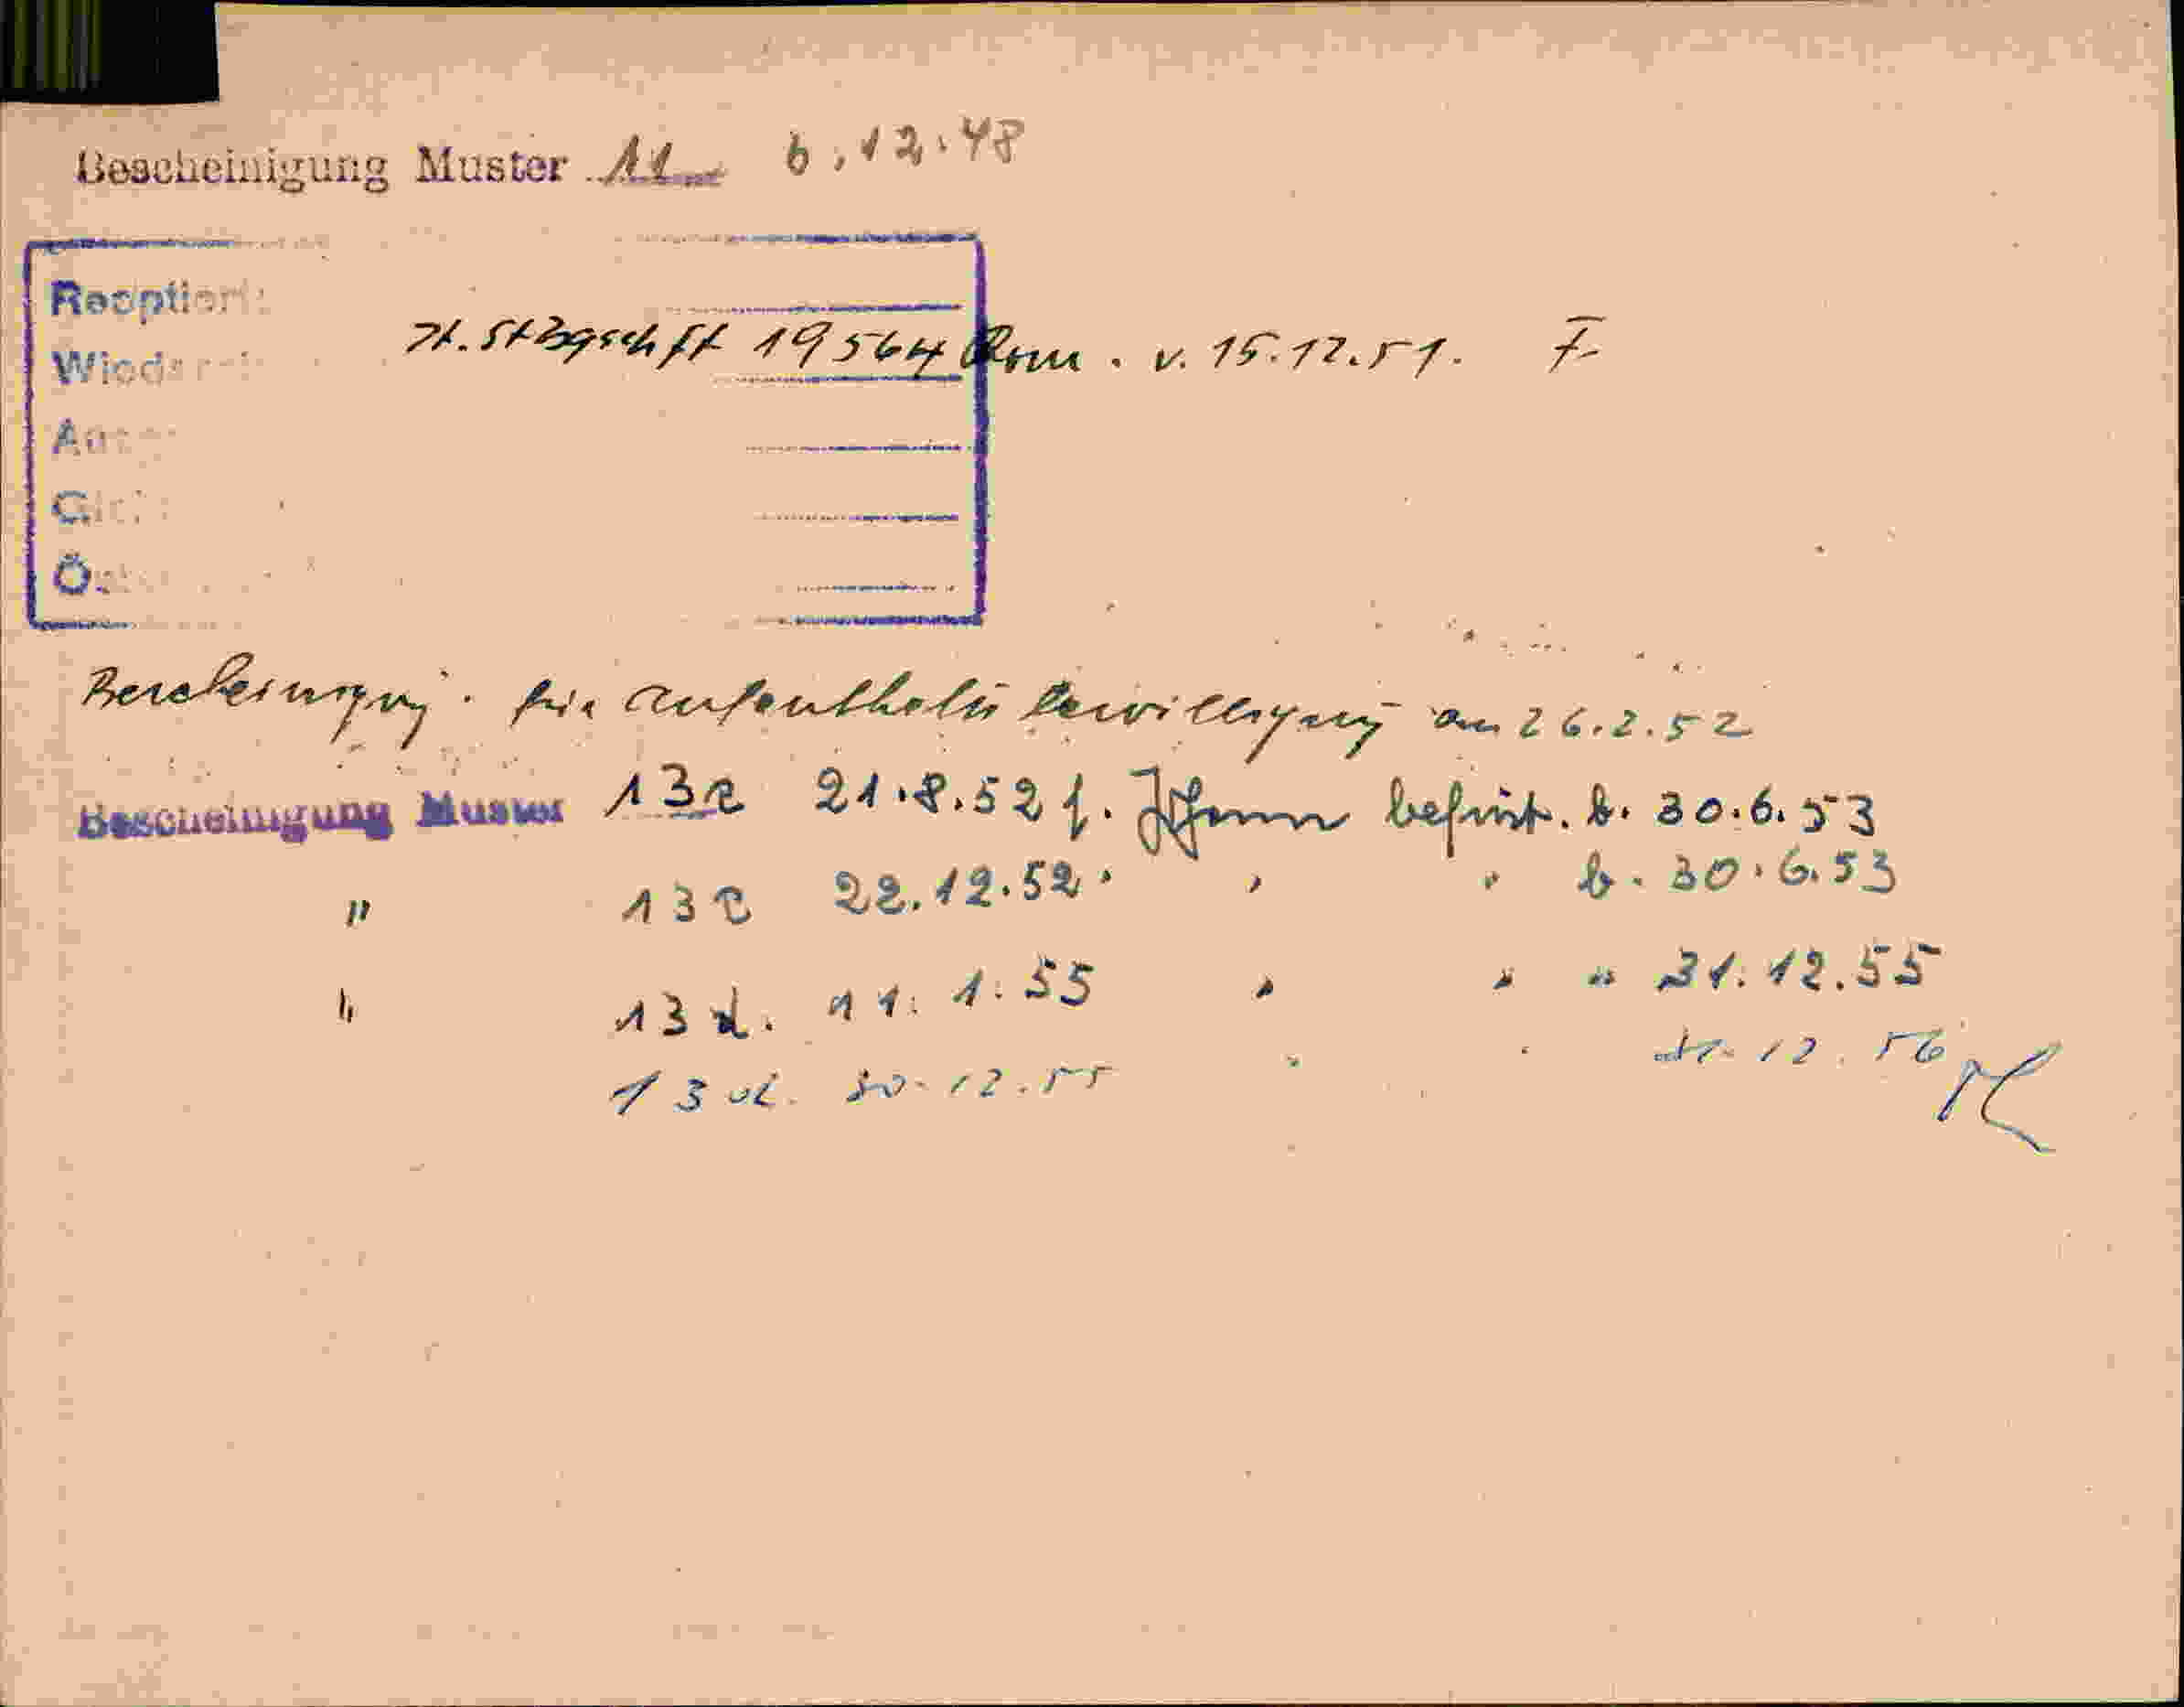 Bescheinigung Muster 11 6.12.48
Reoptiert:
It. Stbgschft 19564 Rom. v. 15.12.51. F
Bescheinigung. für Aufenthaltsbewilligung am 26.2.52
Bescheinigung Muster 13c 21.8.52 f. befrist. b. 30.6.53
" 13c 22.12.52 " " " b. 30.6.53
" 13d. 11.1.55 " " " 31.12.55
13d. 30.12.55 " " 31.12.56